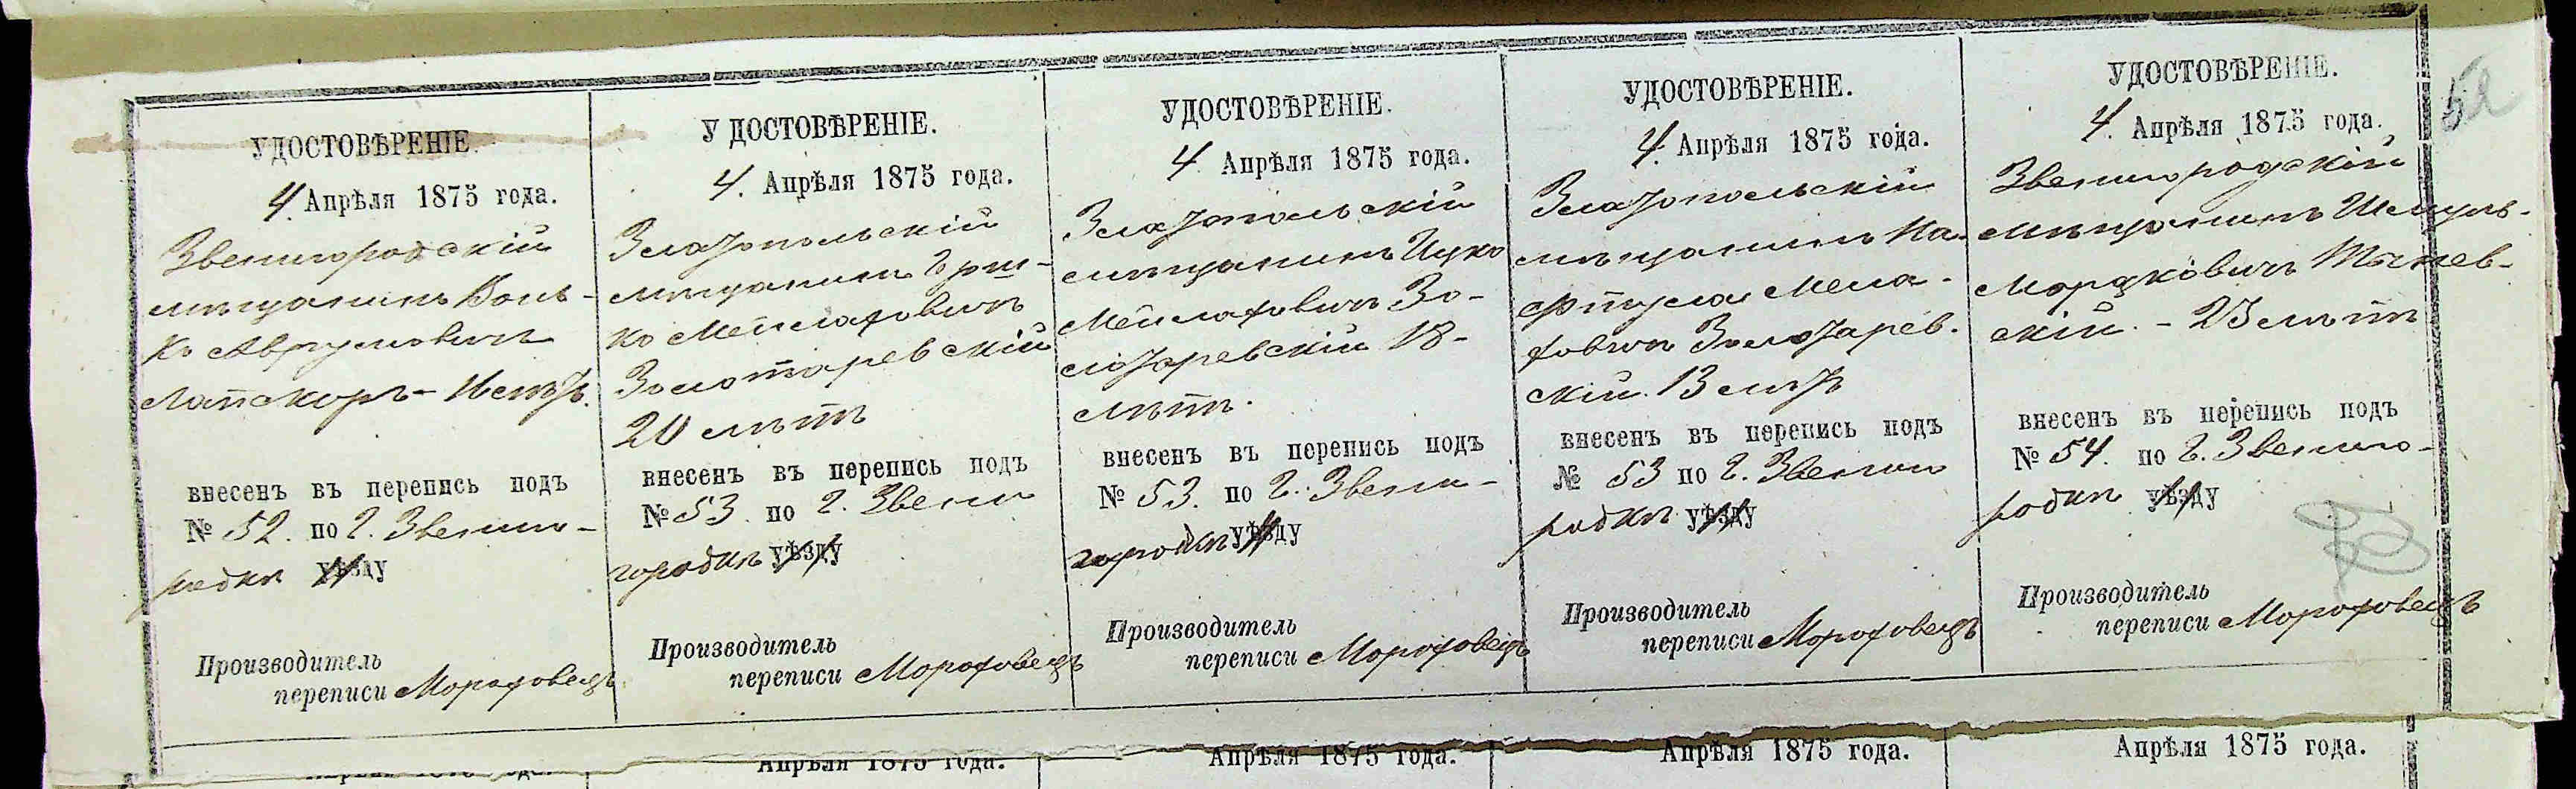 52
УДОСТОВѢРЕНІЕ.
4. Апрѣля 1875 года.
Звенигородскій
мѣщанинъ Вонь-
ко Аврумовичъ
Лапскоръ - 16 лѣтъ.
внесенъ въ перепись подъ
№ 52. по г. Звениго-
родкѣ уѣзду
Производитель
переписи Мороховецъ
УДОСТОВѢРЕНІЕ.
4. Апрѣля 1875 года.
Златопольскій
мѣщанинъ Герш-
ко Мейлаховичъ
Золотаревскій
20 лѣтъ
внесенъ въ перепись подъ
№ 53. по г. Звени
городкѣ уѣзду
Производитель
переписи Мороховецъ
УДОСТОВѢРЕНІЕ.
4 Апрѣля 1875 года.
Златопольскій
мѣщанинъ Ицко
Мейлаховичъ Зо-
лотаревскій 18-
лѣтъ.
внесенъ въ перепись подъ
№ 53. по г. Звени-
городкѣ уѣзду
Производитель
переписи Мороховецъ
УДОСТОВѢРЕНІЕ.
4. Апрѣля 1875 года.
Златопольскій
мѣщанинъ На-
фтула Мела-
ховичъ Золотарев-
скій. 13 лѣтъ
внесенъ въ перепись подъ
№ 53 по г. Звениго
родкѣ уѣзду
Производитель
переписи Мороховецъ
УДОСТОВѢРЕНІЕ.
4. Апрѣля 1875 года.
Звенигородскій
мѣщанинъ Шмуль-
Мордковичъ
скій. - 23 лѣтъ
внесенъ въ перепись подъ
№ 54. по г. Звениго-
родкѣ уѣзду
Производитель
переписи Мороховецъ
Апрѣля 1875 года.
Апрѣля 1875 года.
Апрѣля 1875 года.
Апрѣля 1875 года.